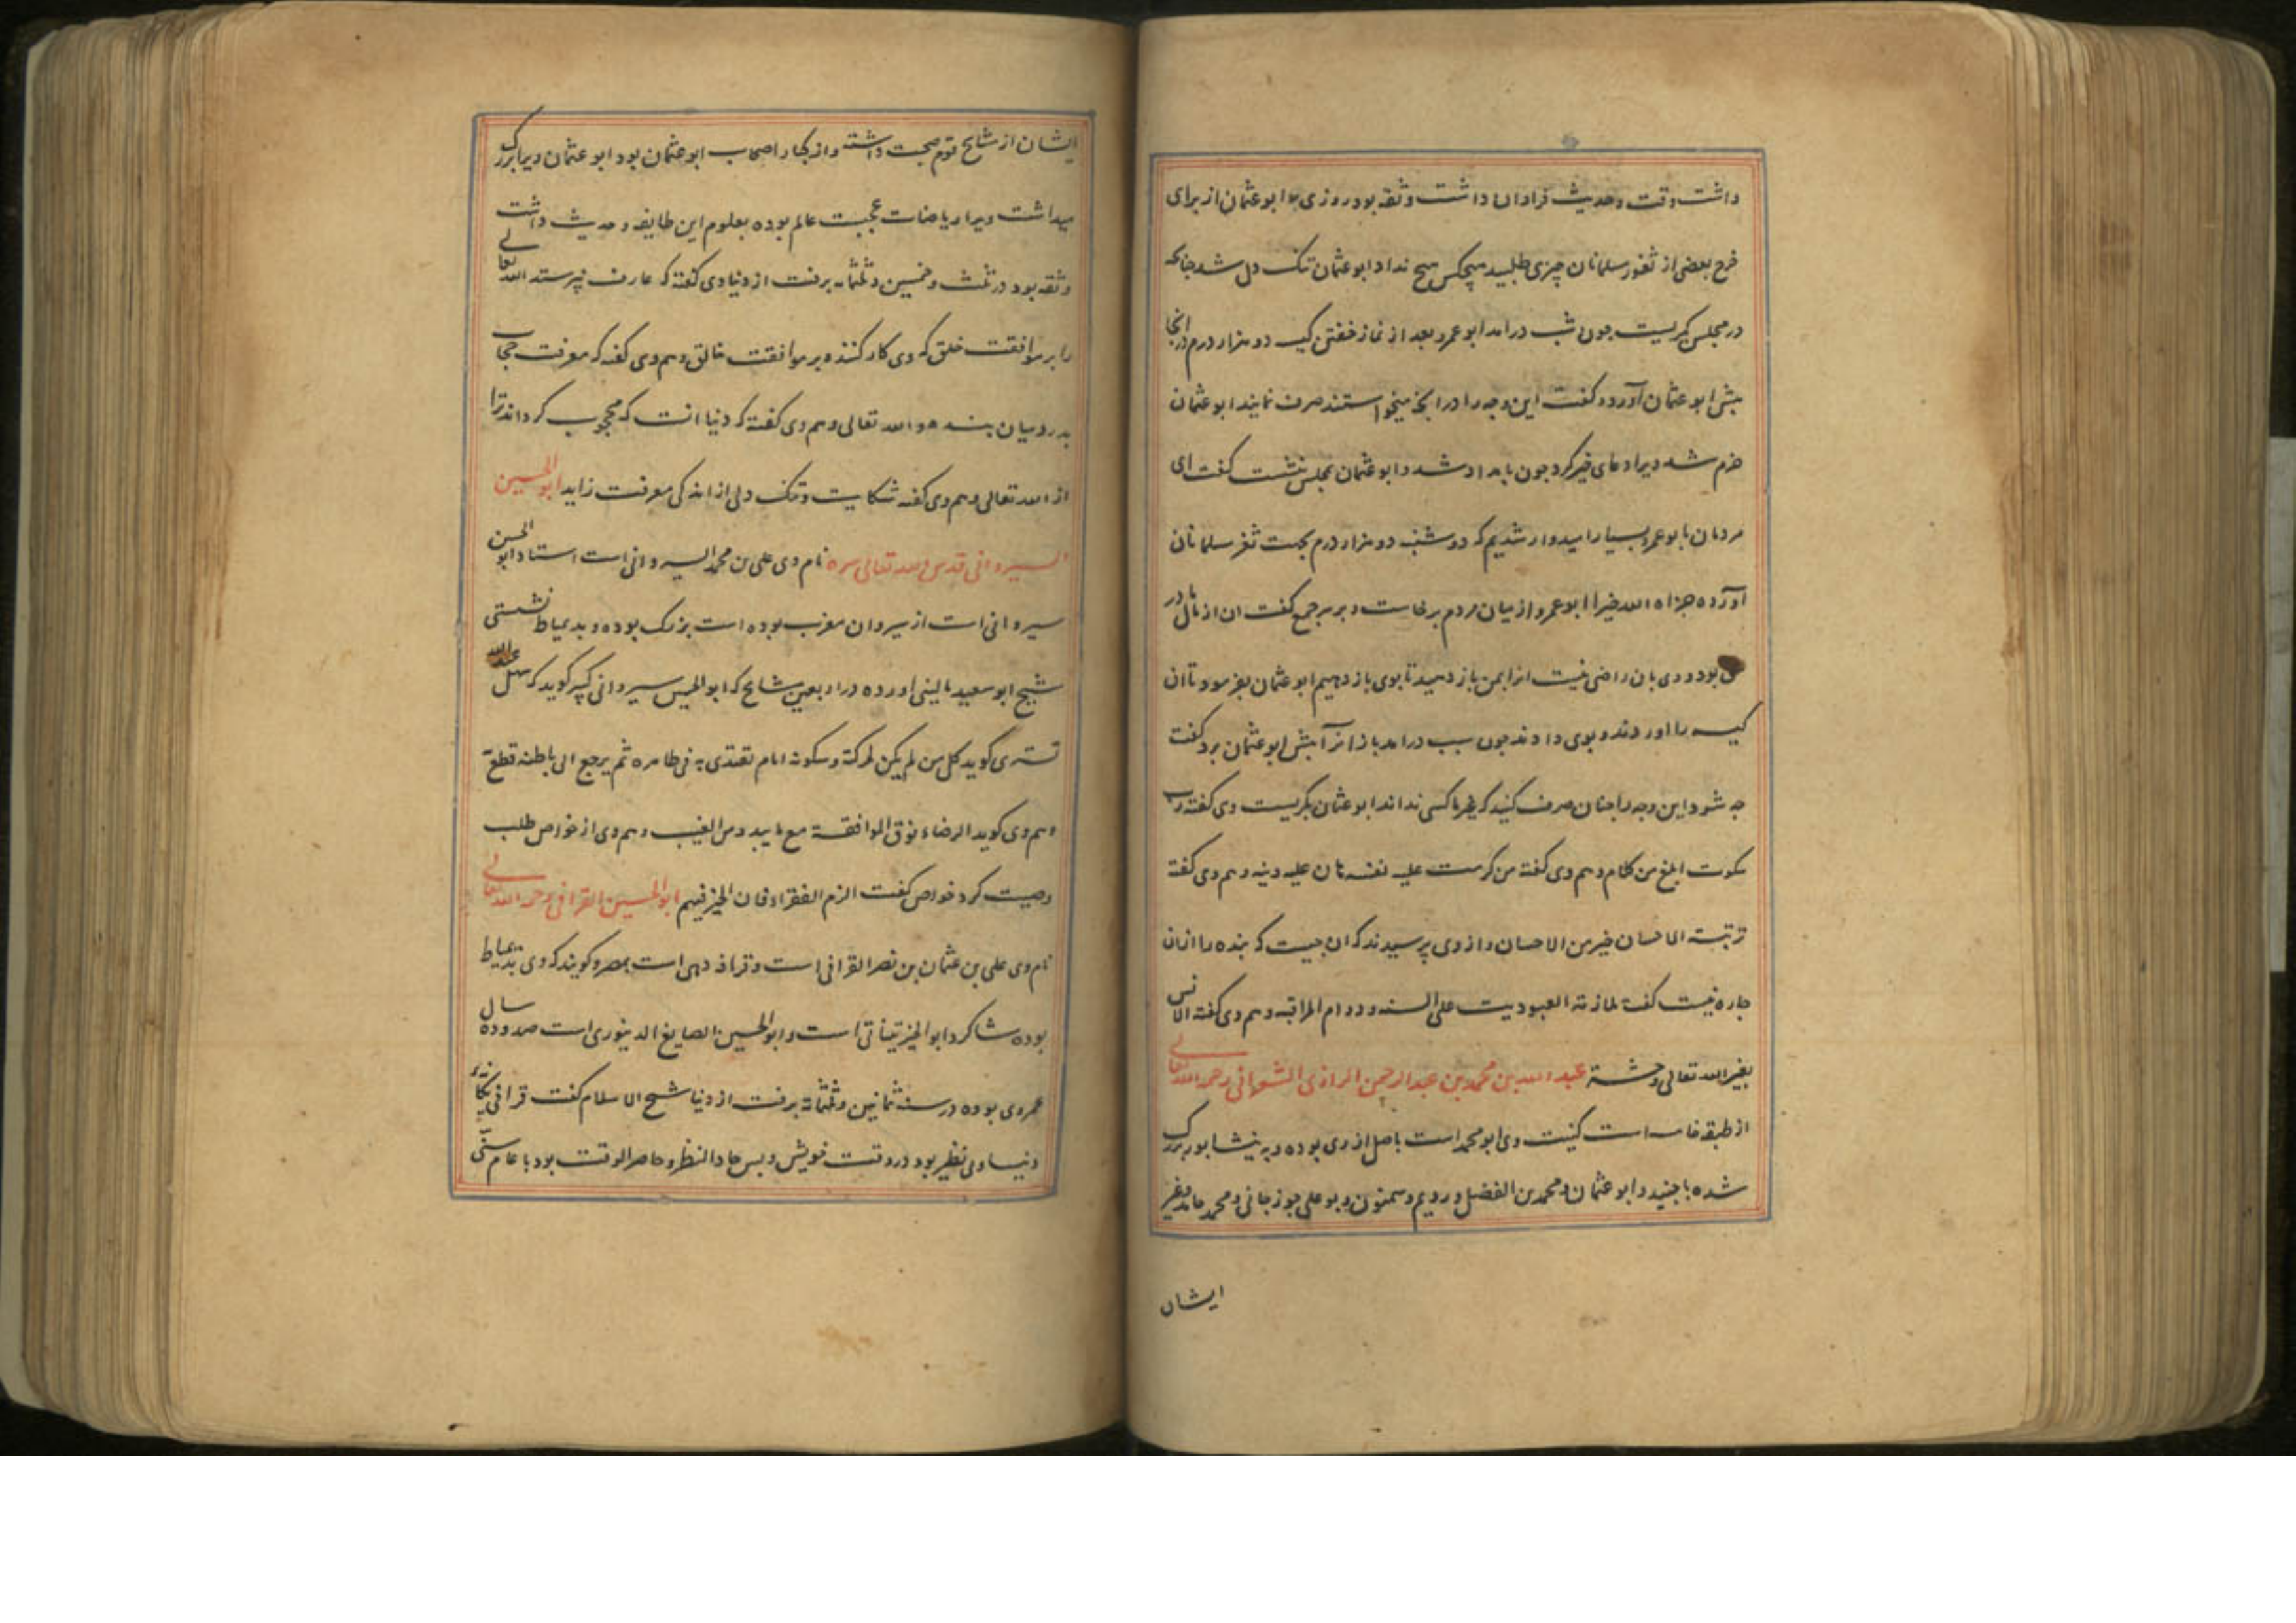 داشت وقت وحدیث فراوان داشت وثقه بود روزی ابوعثمان از برای
خرج بعضی از ثغور مسلمانان چیزی طلبید هیچکس هیچ نداد ابوعثمان تنک دل شد چنانکه
در مجلس بکریست چون شب درامد ابوعمرو بعد از نماز خفتن کیسه دو هزار درم درانجا
پیش ابوعثمان آورد و کفت این وجه را درانچه میخواستند صرف نمایند ابوعثمان
خرم شد ویرا دعای خیر کرد چون بامداد شد وابوعثمان بمجلس بنشست کفت ای
مردمان بابوعمرو بسیار امیدوار شدیم که دوشنبه دو هزار درم بجهت ثغر مسلمانان
آورده جزاه الله خیرا ابوعمرو از میان مردم برخاست و بر سر جمع کفت ان از مال مادر
بود و وی بان راضی نیست انرا بمن باز دهید تا بوی باز دهیم ابوعثمان بفرمود تا ان
کیسه را اوردند و بوی دادند چون شب درامد باز انرا پیش ابوعثمان برد کفت
چه شود این وجه را چنان صرف کنید که غیر ما کسی نداند ابوعثمان بکریست وی کفته رب
سکوت ابلغ من کلام وهم وی کفته من کرمت علیه نفسه هان علیه دینه وهم وی کفته
تربیة الاحسان خیر من الاحسان واز وی پرسیدند که ان چیست که بنده را ازان
چاره نیست کفت ملازمة العبودیت علی السنه ودوام المراقبه وهم وی کفته الانس
بغیر الله تعالی وحشة عبد الله بن محمد بن عبد الرحمن الرازی الشعرانی رحمه الله تعالی
از طبقه خامسه است کنیت وی ابومحمد است باصل از ری بوده و به نیشابور بزرک
شده با جنید وابوعثمان ومحمد بن الفضل ورویم وسمنون وبوعلی جوزجانی ومحمد حامد وغیر
ایشان
ایشان از مشایخ قوم صحبت داشته واز کبار اصحاب ابوعثمان بود ابوعثمان ویرا بزرک
میداشت ویرا ریاضات عجیبت عالم بوده بعلوم این طایفه وحدیث داشت
وثقه بود در ثلث وخمسین وثلثمایه برفت از دنیا وی کفته که عارف نپرستد الله تعالی
را بر موافقت خلق که وی کار کننده بر موافقت خالق وهم وی کفته که معرفت حجاب
بدرد میان بنده والله تعالی وهم وی کفته که دنیا انست که محجوب کرداند ترا
از الله تعالی وهم وی کفته شکایت وتنک دلی از اندکی معرفت زاید ابوالحسین
السیروانی قدس الله تعالی سره نام وی علی بن محمد السیروانی است استاد ابوالحسن
سیروانی است از سیروان مغرب بوده است بزرک بوده و بدمیاط نشستی
شیخ ابوسعید مالینی اورده در اربعین مشایخ که ابوالحسین سیروانی کبیر کوید که سهل عبد الله
تستری کوید کل من لم یکن لحرکته وسکونه امام تقتدی به فی ظاهره ثم یرجع الی باطنه قطع
وهم وی کوید الرضاء فوق الموافقة مع ما یبدو من الغیب وهم وی از خواص طلب
وصیت کرد خواص کفت الزم الفقراء فان الخیر فیهم ابوالحسین القرافی رحمه الله تعالی
نام وی علی بن عثمان بن نصر القرافی است وقرافه دهی است بمصر وکویند که وی بدمیاط
بوده شاکرد ابوالخیر تیناتی است وابوالحسین الصایغ الدینوری است صد و ده سال
عمر وی بوده در سنه ثمانین وثلثمائة برفت از دنیا شیخ الاسلام کفت قرافی یکانه
دنیا وبی نظیر بود در وقت خویش وبس حاد النظر وحاضر الوقت بود با عام سخن